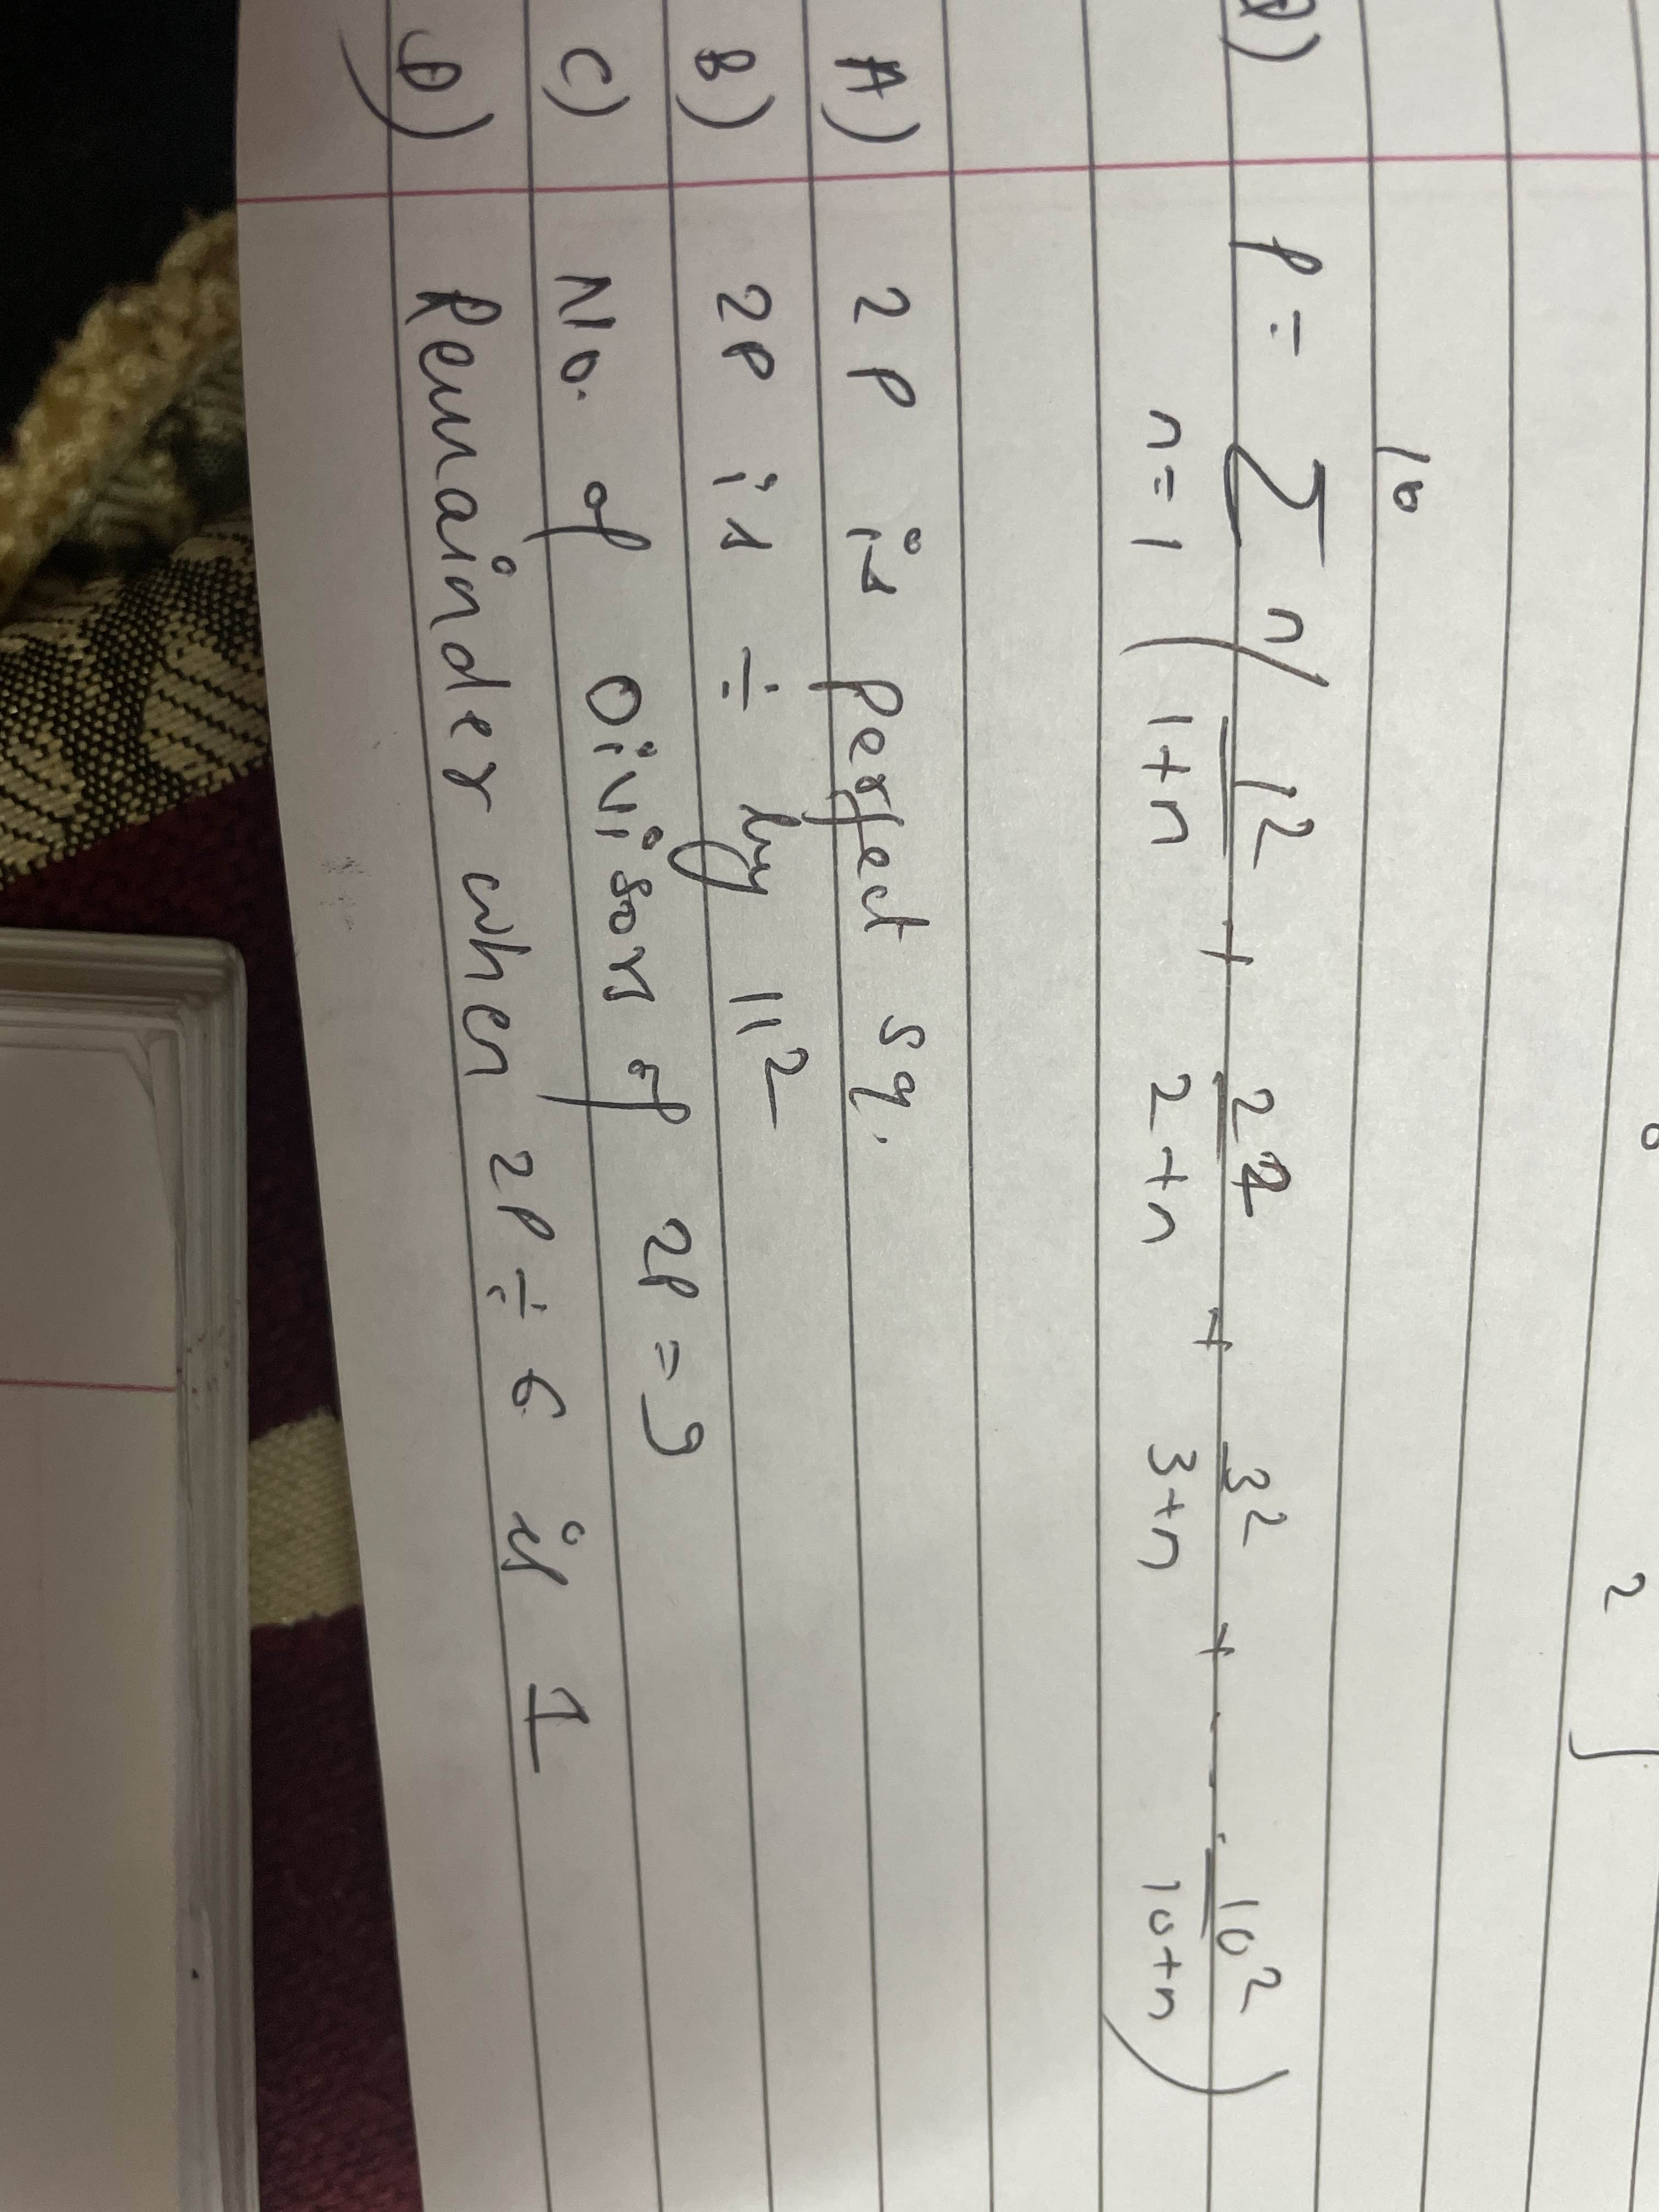 10
P = ∑ n ( 1²/1+n + 2²/2+n + 3²/3+n + . . . . 10²/10+n )
n=1
A) 2P is perfect sq.
B) 2P is ÷ by 11²
C) No. of Divisors of 2P = 9
D) Remainder when 2P ÷ 6 is 1